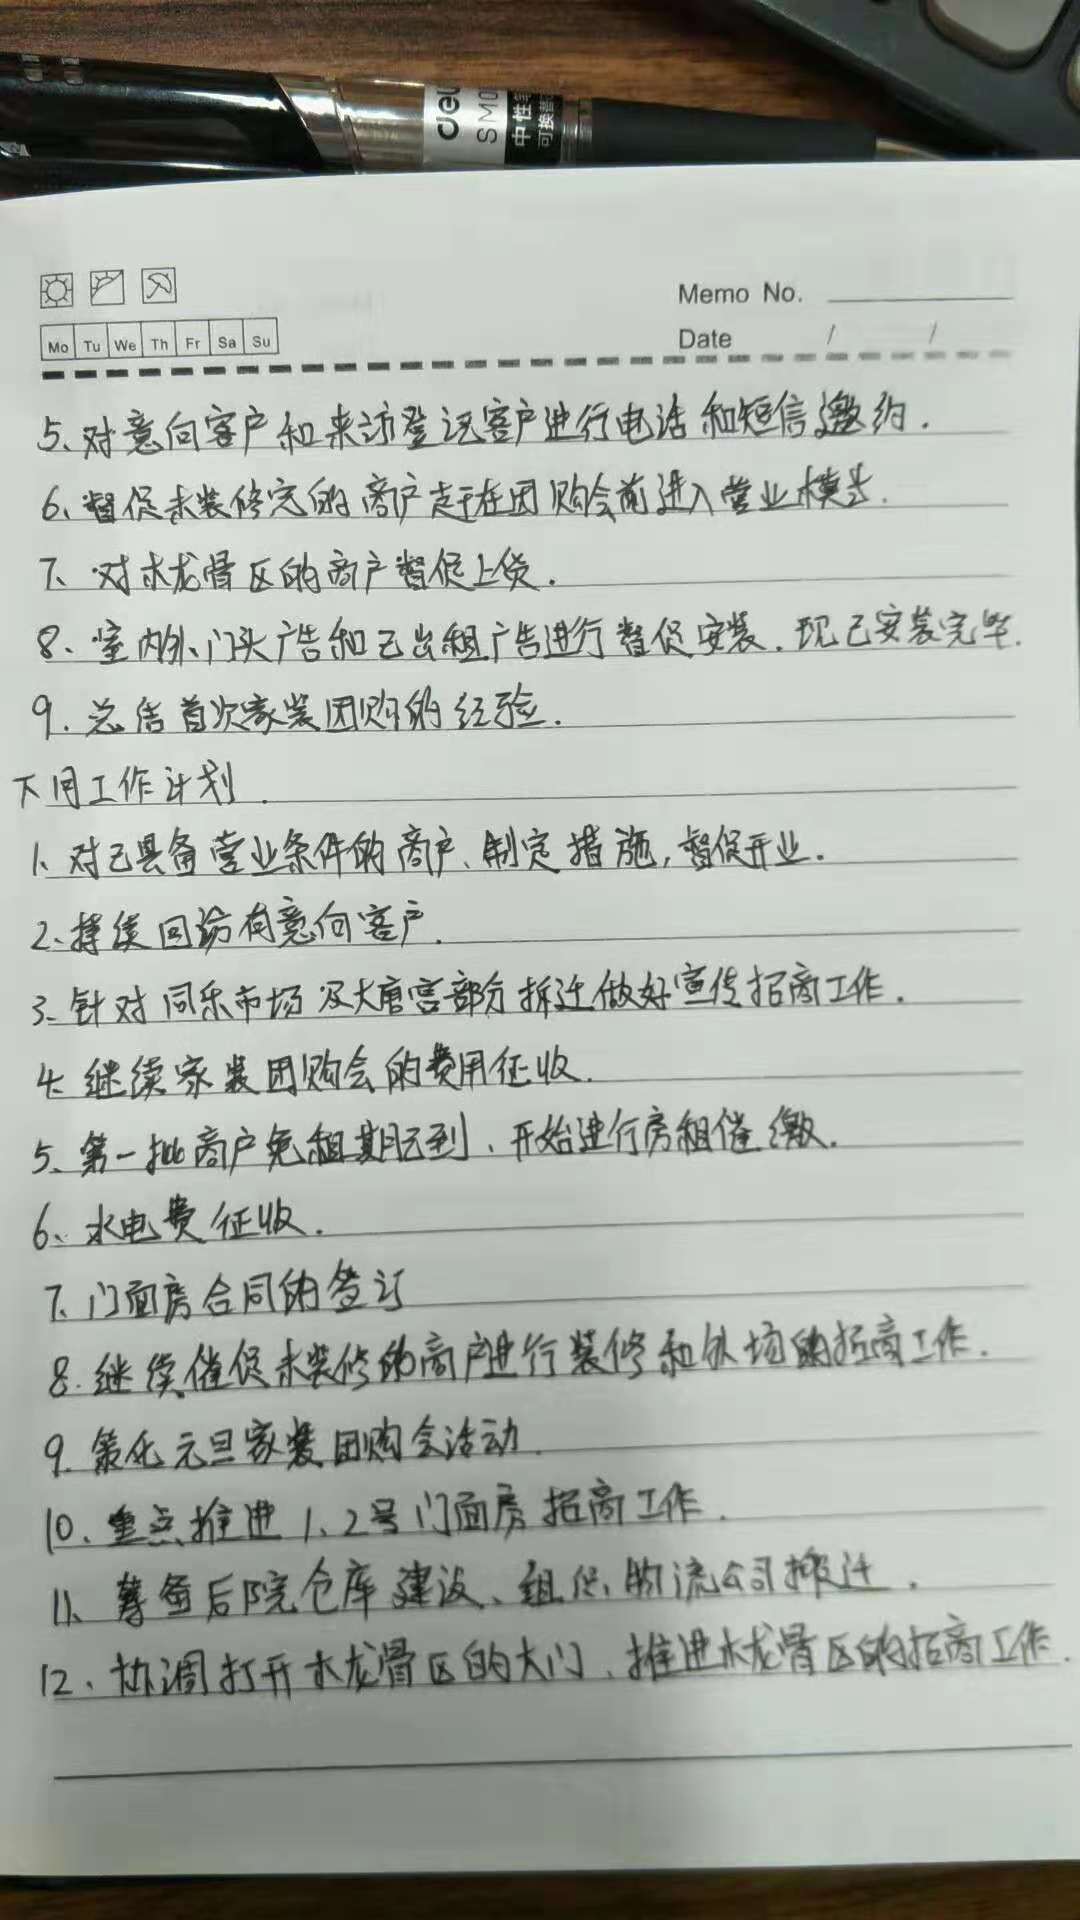 deli
SM0
中性笔
可换替
Memo No.
Mo Tu We Th Fr Sa Su
Date / /
5、对意向客户和来访登记客户进行电话和短信邀约.
6、督促未装修完的商户赶在团购会前进入营业模式.
7、对木龙骨区的商户督促上货.
8、室内外、门头广告和已出租广告进行督促安装.现已安装完毕.
9.总结首次家装团购的经验.
下月工作计划.
1、对已具备营业条件的商户、制定措施,督促开业.
2、持续回访有意向客户.
3、针对同乐市场及大唐宫部分拆迁做好宣传招商工作.
4、继续家装团购会的费用征收.
5、第一批商户免租期已到、开始进行房租催缴.
6、水电费征收.
7、门面房合同的签订
8.继续催促未装修的商户进行装修和外场的招商工作.
9.策化元旦家装团购会活动.
10、重点推进1、2号门面房招商工作.
11、筹备后院仓库建设、组织物流公司搬迁.
12、协调打开木龙骨区的大门、推进木龙骨区的招商工作.